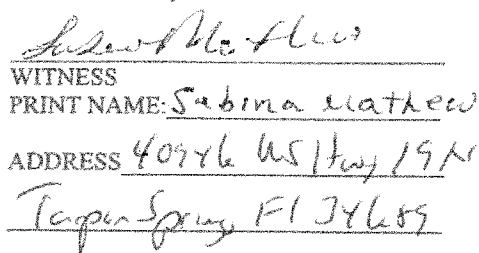 WITNESS
PRINT NAME: Sabina Mathew
ADDRESS 40946 US Hwy 19 N
Tarpon Springs, Fl 34689